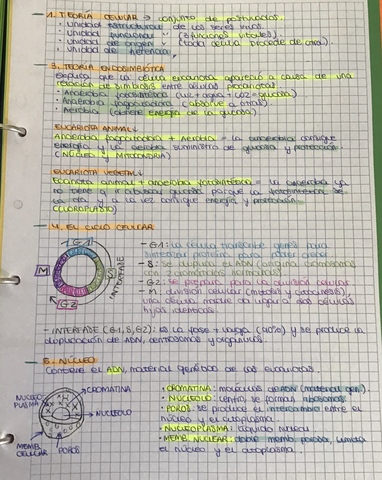 1. TEORÍA CELULAR → conjunto de postulados.
• Unidad estructural de los seres vivos.
• Unidad funcional " (3 funciones vitales).
• Unidad de origen " (toda célula procede de otra).
• Unidad de herencia.
3. TEORÍA ENDOSIMBIÓTICA
Explica que la célula eucariota apareció a causa de una
relación de simbiosis entre células procariotas.
• Anaerobia fotosintética (luz + agua + CO2 = glucosa)
• Anaerobia fagocitadora (absorbe a otras).
• Aerobia (obtiene energía de la glucosa)
EUCARIOTA ANIMAL
Anaerobia fagocitadora + Aerobia = la anaerobia consigue
energía y la aerobia suministro de glucosa y protección
(NÚCLEO y MITOCONDRIA)
EUCARIOTA VEGETAL
Eucariota animal + anaerobia fotosintética = la anaerobia ya
no tiene q absorber glucosa porque la fotosintética se
la da y a la vez consigue energía y protección.
(CLOROPLASTO)
4. EL CICLO CELULAR
G1
M
S
G2
INTERFASE
- G1: la célula transcribe genes para
sintetizar proteínas para poder crecer
- S: se duplica el ADN (origina cromosomas
con 2 cromátidas hermanas)
- G2: se prepara para la división celular
- M: división celular (mitosis y citocinesis),
una célula madre da lugar a dos células
hijas idénticas.
- INTERFASE (G1, S, G2): es la fase + larga y se produce la
duplicación de ADN, centrosomas y orgánulos.
5. NÚCLEO
Contiene el ADN, material genético de los eucariotas.
NUCLEO
PLASMA
CROMATINA
NUCLEOLO
MEMB.
CELULAR
POROS
• CROMATINA: moléculas de ADN (material gen.)
• NUCLEOLO: centro, se forman ribosomas.
• POROS: se produce el intercambio entre el
núcleo y el citoplasma.
• NUCLEOPLASMA: líquido
• MEMB. NUCLEAR: doble memb. porosa, limita
el núcleo y el citoplasma.